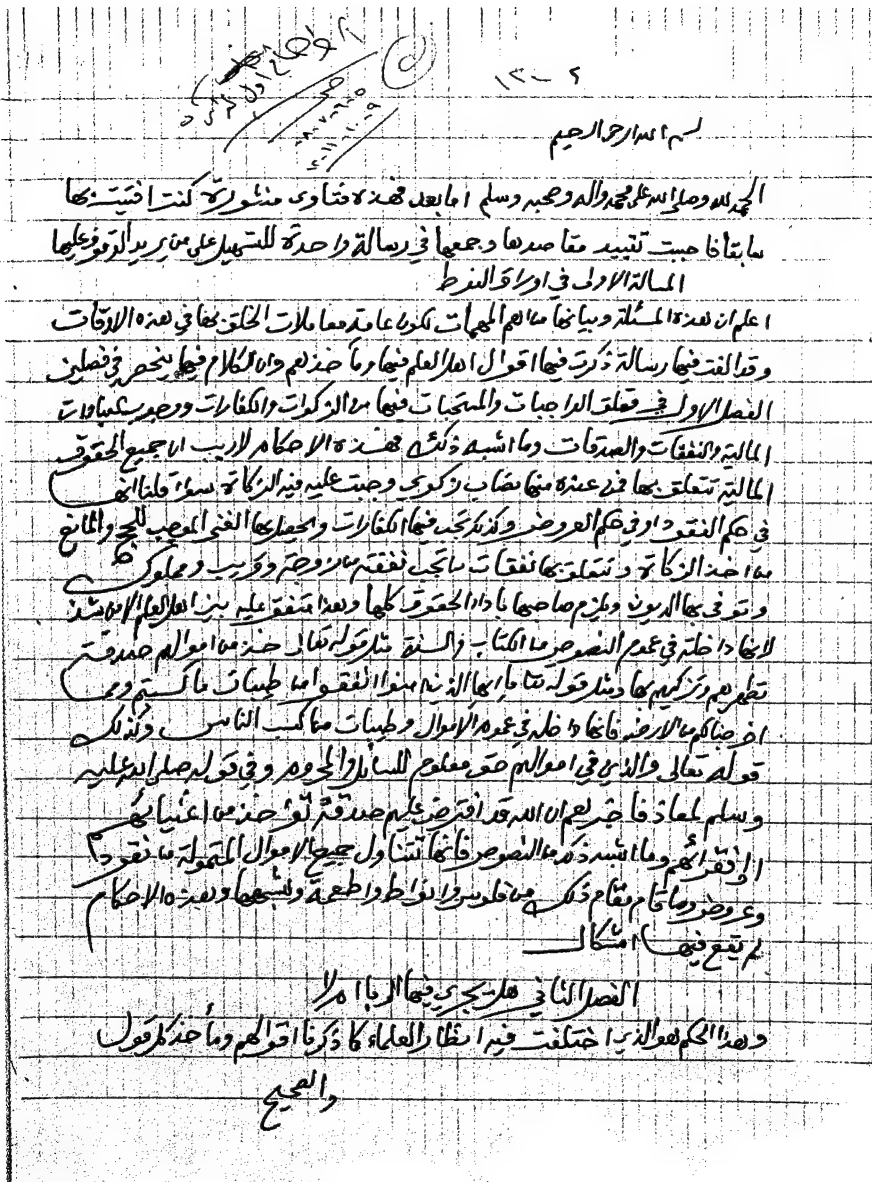 ٢ - ١٣
بسم الله الرحمن الرحيم
الحمد لله وصلى الله على محمد واله وصحبه وسلم اما بعد فهذه فتاوى منثورة كنت افتيت بها
سابقا فاحببت تقييد مقاصدها وجمعها في رسالة واحدة للتسهيل على من يريد الوقوف عليها
المسالة الاولى في اوراق النوط
اعلم ان هذه المسئلة وبيانها من اهم المهمات لكون عامة معاملات الخلق بها في هذه الاوقات
وقد الفت فيها رسالة ذكرت فيها اقوال اهل العلم فيها ومأخذهم وان الكلام فيها ينحصر في فصلين
الفصل الاول في تعلق الواجبات والمستحبات فيها من الزكوات والكفارات ووجوب العبادات
المالية والنفقات والصدقات وما اشبه ذلك فهذه الاحكام لا ريب ان جميع الحقوق
المالية تتعلق بها فمن عنده منها نصاب زكوي وجبت عليه فيه الزكاة سواء قلنا انها
في حكم النقود او في حكم العروض وكذلك تجب فيها الكفارات ويحصل بها الغنى الموجب للحج والمانع
من اخذ الزكاة وتتعلق بها نفقات من تجب نفقته من زوجة وقريب ومملوك
وتوفى بها الديون ويلزم صاحبها باداء الحقوق كلها وهذا متفق عليه بين اهل العلم الا من شذ
لانها داخلة في عموم النصوص من الكتاب والسنة مثل قوله تعالى خذ من اموالهم صدقة
تطهرهم وتزكيهم بها ومثل قوله تعالى يا ايها الذين امنوا انفقوا من طيبات ما كسبتم ومما
اخرجنا لكم من الارض فانها داخلة في عموم الاموال وطيبات مكاسب الناس وكذلك
قوله تعالى والذين في اموالهم حق معلوم للسائل والمحروم وفي قوله صلى الله عليه
وسلم لمعاذ فاخبرهم ان الله قد افترض عليهم صدقة تؤخذ من اغنيائهم
الى فقرائهم وما اشبه ذلك من النصوص فانها تتناول جميع الاموال المتمولة من نقود
وعروض وما قام مقام ذلك من فلوس وانواط واطعمة وشبهها وهذه الاحكام
لم يقع فيها اشكال
الفصل الثاني هل يجري فيها الربا ام لا
وهذا الحكم هو الذي اختلفت فيه انظار العلماء كما ذكرنا اقوالهم ومأخذ كل قول
والصحيح